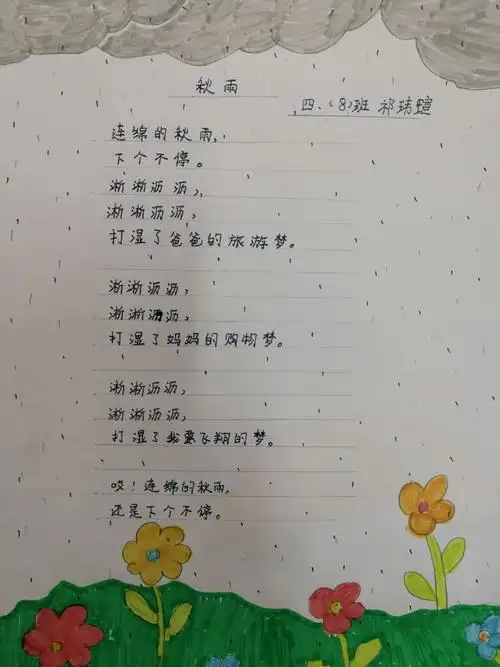 秋雨
四、(8)班 祁玮瑄
连绵的秋雨,
下个不停。
淅淅沥沥,
淅淅沥沥,
打湿了爸爸的旅游梦。
淅淅沥沥,
淅淅沥沥,
打湿了妈妈的购物梦。
淅淅沥沥,
淅淅沥沥,
打湿了我要飞翔的梦。
哎!连绵的秋雨,
还是下个不停。